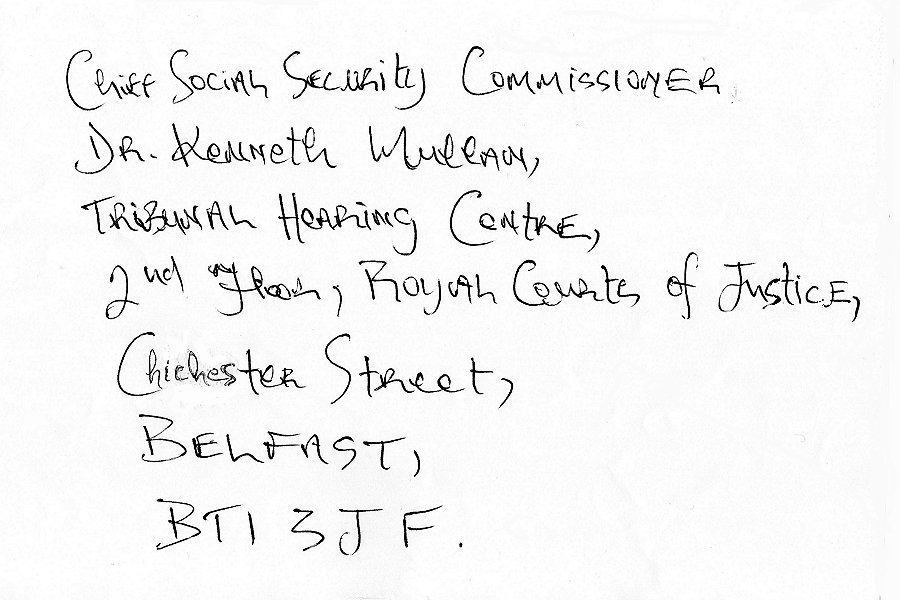 Chief Social Security Commissioner
Dr. Kenneth Mullan,
Tribunal Hearing Centre,
2nd Floor, Royal Courts of Justice,
Chichester Street,
BELFAST,
BT1 3JF.